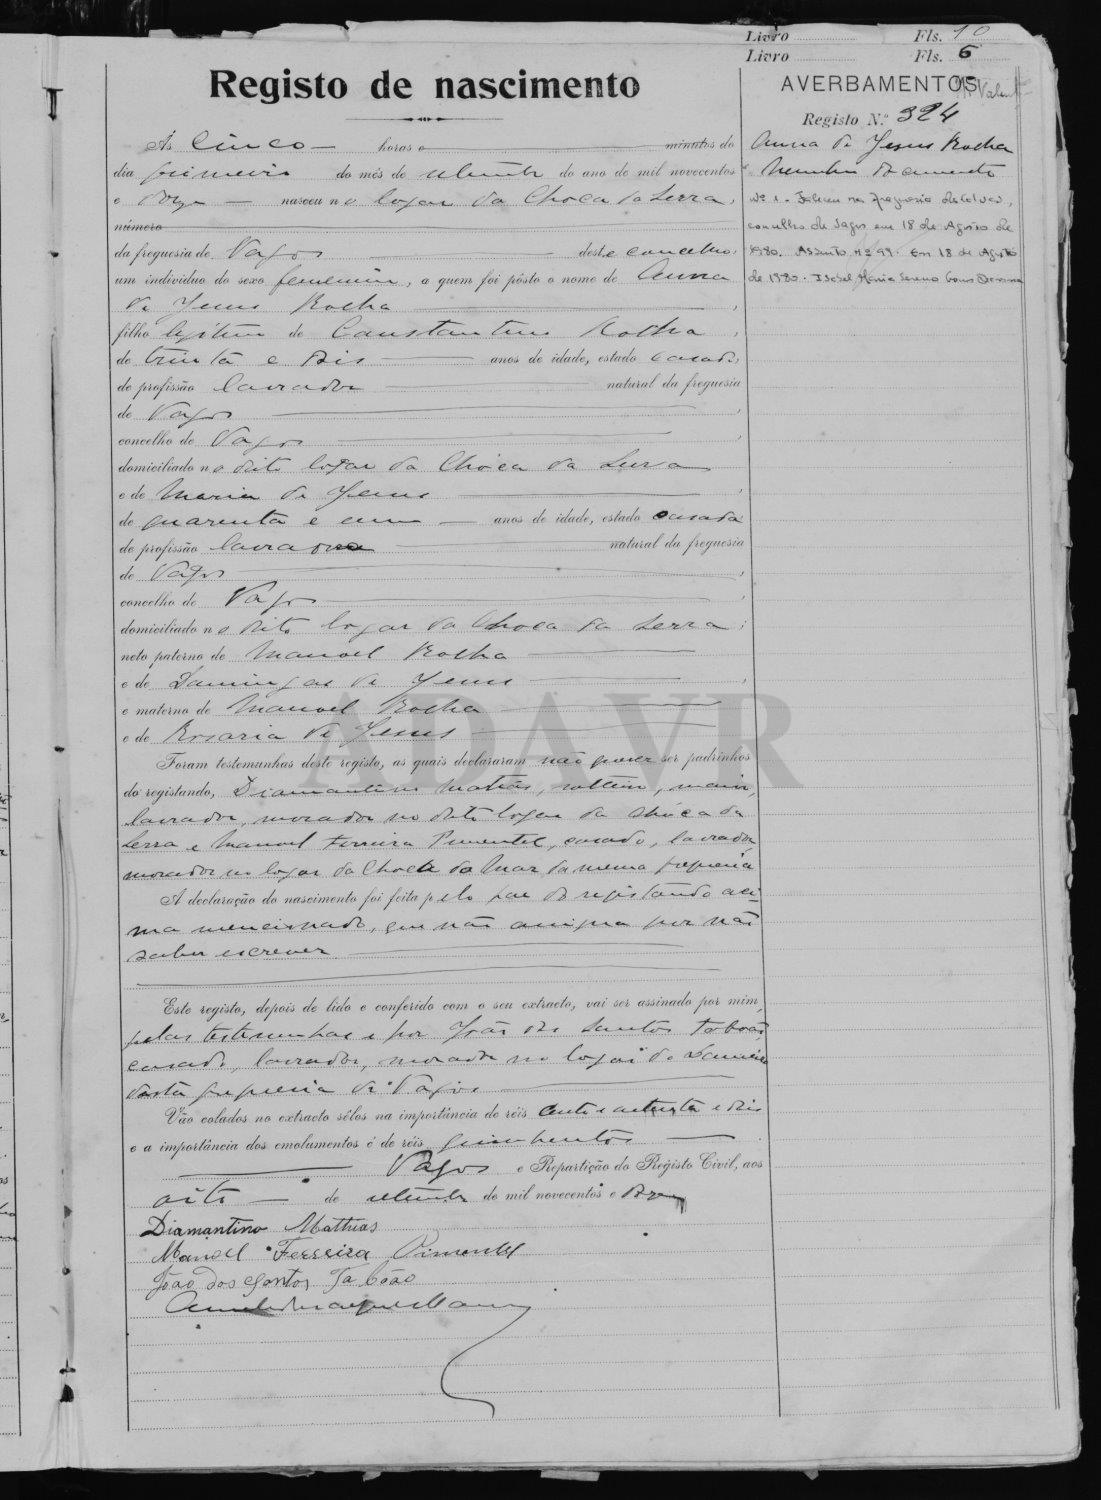 Livro Fls. 10
Livro Fls. 6
Registo de nascimento
AVERBAMENTOS
Registo N.º 324
Anna de Jesus Rocha
Nenhum documento
Nº 1 - Faleceu na freguesia de
concelho de Vagos, em 18 de Agosto de
1980. Assento nº 99. Em 18 de Agosto
de 1980. Isabel Maria
Ás Cinco horas e minutos do
dia primeiro do mês de setembro do ano de mil novecentos
e doze nasceu no logar da Choca da Serra,
número
da freguesia de Vagos deste concelho,
um indivíduo do sexo feminino, a quem foi pôsto o nome de Anna
de Jesus Rocha
filho legitimo de Constantino Rocha,
de trinta e dois anos de idade, estado casado,
de profissão lavrador natural da freguesia
de Vagos,
concelho de Vagos,
domiciliado no dito logar da Choca da Serra
e de Maria de Jesus,
de quarenta e um anos de idade, estado casada
de profissão lavradora natural da freguesia
de Vagos,
concelho de Vagos,
domiciliado no dito logar da Choca da Serra;
neto paterno de Manoel Rocha
e de Domingas de Jesus,
e materno de Manoel Rocha
e de Rosaria de Jesus
Foram testemunhas deste registo, as quais declararam não querer ser padrinhos
do registando, Diamantino Matias, solteiro, maior,
lavrador, morador no dito logar da Choca da
Serra e Manoel Ferreira Pimentel, casado, lavrador,
morador no logar da Choca do Mar da mesma freguesia
A declaração do nascimento foi feita pelo pae do registando aci-
ma mencionado, que não assigna por não
saber escrever
Este registo, depois de lido e conferido com o seu extracto, vai ser assinado por mim,
pelas testemunhas e por João dos Santos Taboão,
casado, lavrador, morador no logar de
desta freguesia de Vagos
Vão colados no extracto sêlos na importância de réis cento e setenta e dois
e a importância dos emolumentos é de réis quinhentos
Vagos e Repartição do Registo Civil, aos
oito de setembro de mil novecentos e doze
Diamantino Mathias
Manoel Ferreira Pimentel
João dos Santos Taboão
ADAVR